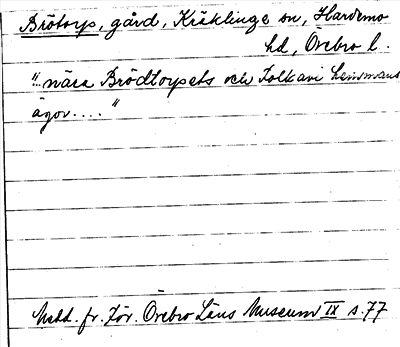 Brötorp, gård, Kräklinge sn, Hardemo
hd, Örebro l.
"...nära Brödtorpets och Folkavi Länsmans
ägor...."
Medd. fr. För. Örebro Läns Museum IX s. 77